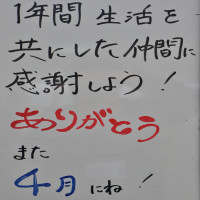 1年間 生活を
共にした仲間に
感謝しよう!
ありがとう
また
4月にね!